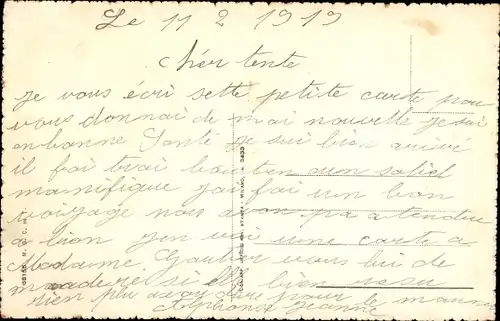 Le 11 2 1919
Chér tente
je vous écri sette petite carte pour
vous donnai de mai nouvelle je sui
en bonne Santé je sui bien arive
il fai trai bau ten un soliel
manifique jai fai un bon
voiyage nous a pa atendue
a lion jen voi une carte a
Madame Gautier vous lui de
manderei si elle bien resu
rien plu a pour le
Alphonse Jeanne